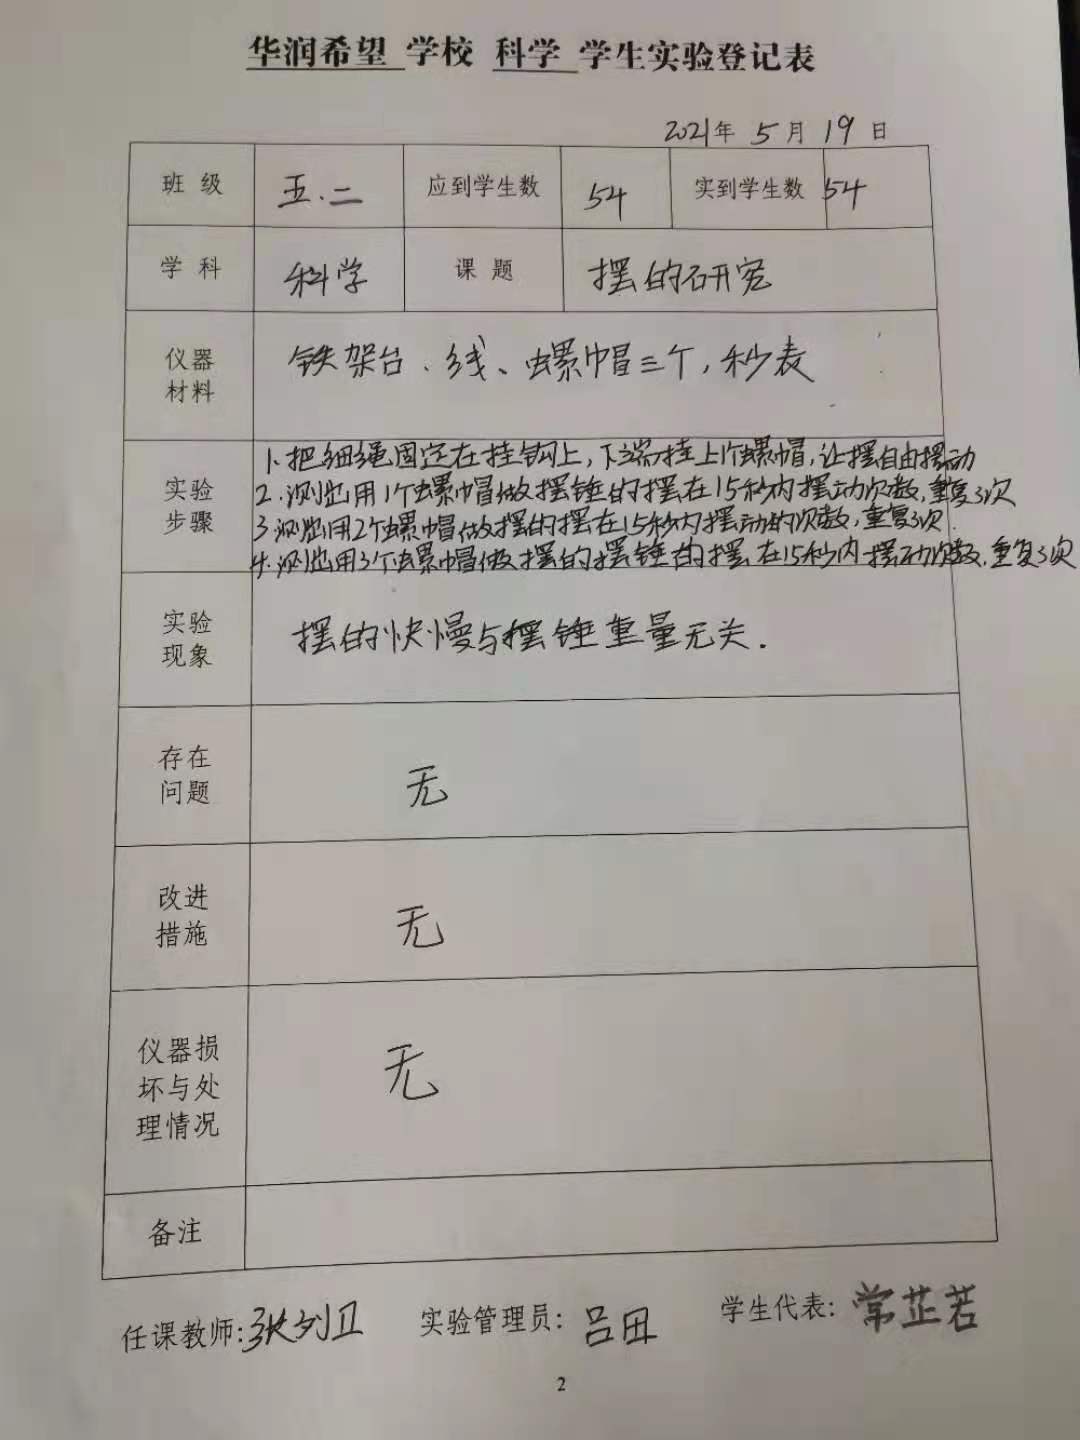 华润希望 学校 科学 学生实验登记表
2021年 5月 19日
班级 五.二 应到学生数 54 实到学生数 54
学科 科学 课题 摆的研究
仪器材料 铁架台、线、螺帽三个,秒表
实验步骤
1.把细绳固定在挂钩上,下端挂上1个螺帽,让摆自由摆动
2.测出用1个螺帽做摆锤的摆在15秒内摆动次数,重复3次
3.测出用2个螺帽做摆的摆在15秒内摆动的次数,重复3次.
4.测出用3个螺帽做摆的摆锤的摆在15秒内摆动次数.重复3次
实验现象 摆的快慢与摆锤重量无关.
存在问题 无
改进措施 无
仪器损坏与处理情况 无
备注
任课教师:张列卫 实验管理员:吕田 学生代表:常芷若
2